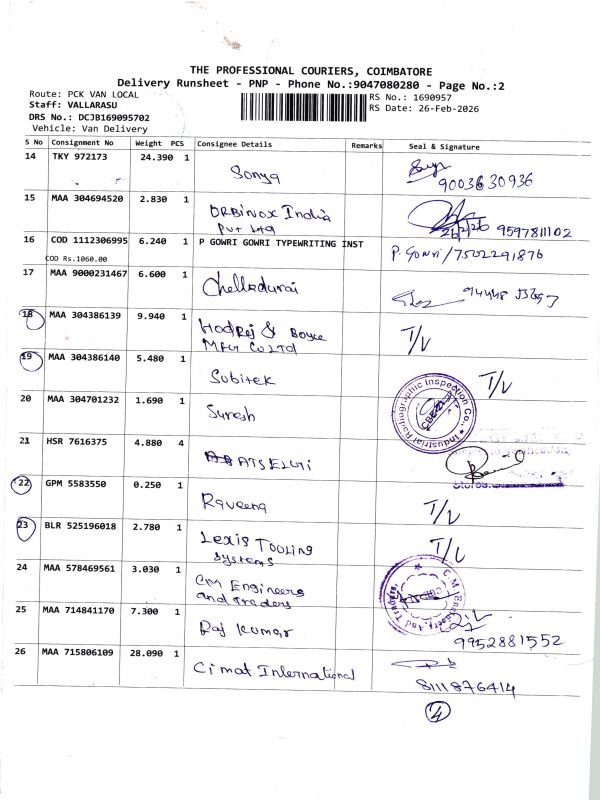 THE PROFESSIONAL COURIERS, COIMBATORE
Delivery Runsheet - PNP - Phone No.:9047080280 - Page No.:2
Route: PCK VAN LOCAL
RS No.: 1690957
Staff: VALLARASU
RS Date: 26-Feb-2026
DRS No.: DCJB169095702
Vehicle: Van Delivery
S No Consignment No Weight PCS Consignee Details Remarks Seal & Signature
14 TKY 972173 24.390 1 Sonya
9003630936
15 MAA 304694520 2.830 1 ORBinox India
Pvt Ltd
26/2/26 9597811102
16 COD 1112306995 6.240 1 P GOWRI GOWRI TYPEWRITING INST P. Gowri / 7502291876
COD Rs.1060.00
17 MAA 9000231467 6.600 1 Chelladurai
18 MAA 304386139 9.940 1 Hodrej & Boyce T/V
MFG Co LTD
19 MAA 304386140 5.480 1 Subitek T/V
20 MAA 304701232 1.690 1 Suresh
Industrial Radiographic Inspection Co.,
21 HSR 7616375 4.880 4
22 GPM 5583550 0.250 1 Raveena T/V
23 BLR 525196018 2.780 1 Lexis TOOLING T/V
Systems
24 MAA 578469561 3.030 1 CM Engineers
and Traders
C.M. Engineers And Traders
25 MAA 714841170 7.300 1 Raj Kumar
9952881552
26 MAA 715806109 28.090 1 Cimat International
8111876414
4